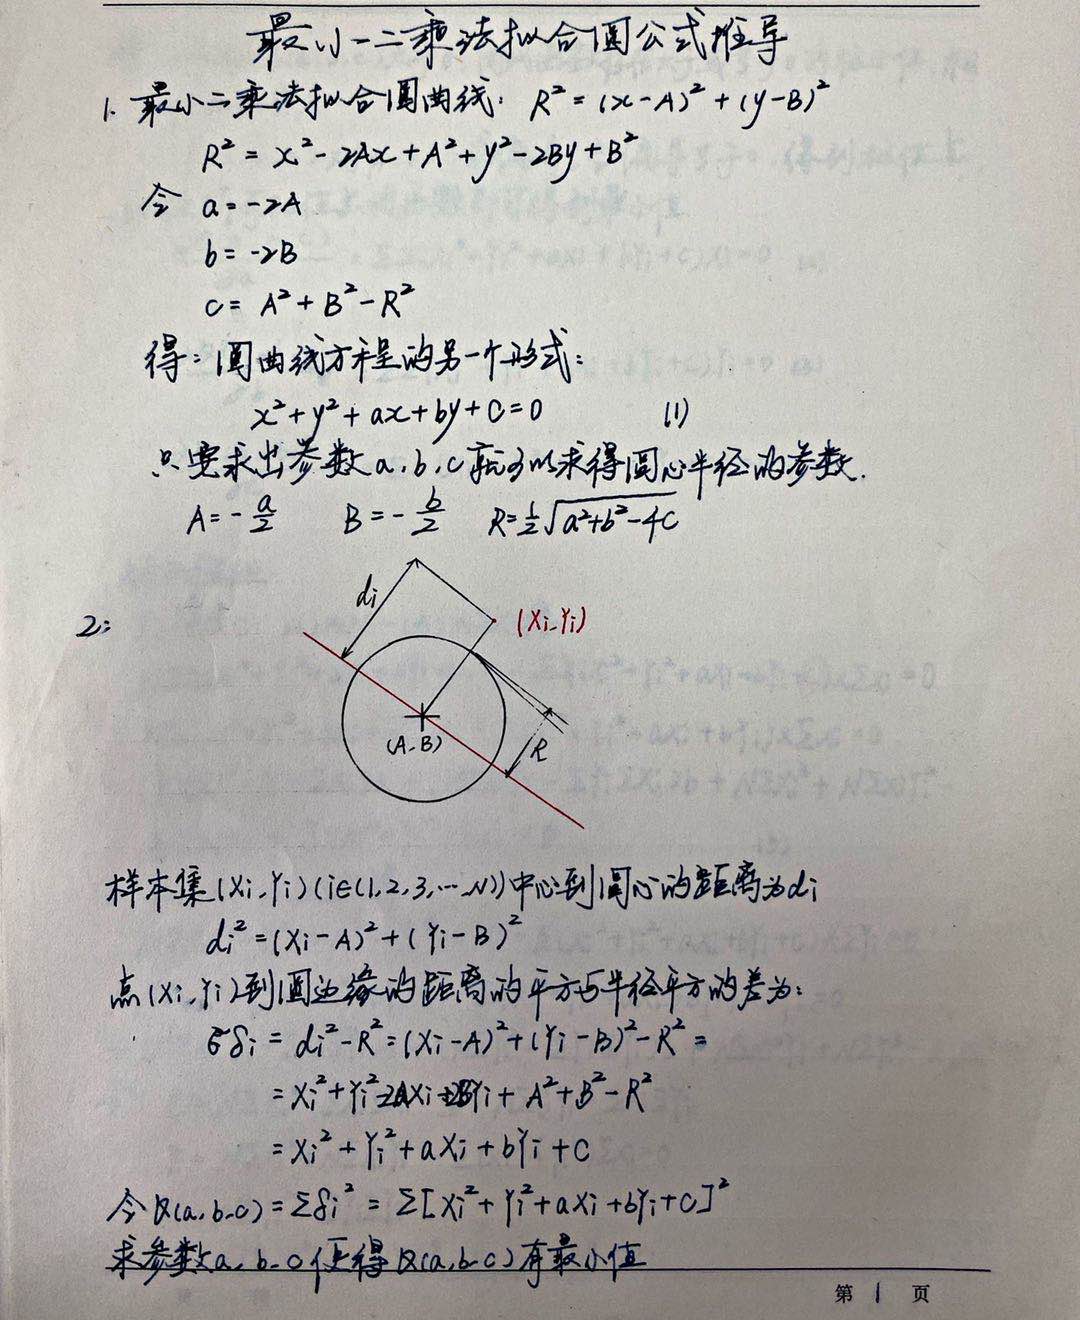 最小二乘法拟合圆公式推导
1. 最小二乘法拟合圆曲线: R² = (x-A)² + (y-B)²
R² = x² - 2Ax + A² + y² - 2By + B²
令 a = -2A
b = -2B
c = A² + B² - R²
得: 圆曲线方程的另一个形式:
x² + y² + ax + by + c = 0 (1)
只要求出参数 a, b, c 就可以求得圆心半径的参数.
A = -a/2 B = -b/2 R = ½√(a²+b²-4c)
2:
di
(Xi, Yi)
(A, B)
R
样本集 (Xi, Yi) (i∈(1,2,3,…N)) 中心到圆心的距离为di
di² = (Xi-A)² + (Yi-B)²
点(Xi, Yi)到圆边缘的距离的平方与半径平方的差为:
δi = di² - R² = (Xi-A)² + (Yi-B)² - R² =
= Xi² + Yi² - 2AXi - 2BYi + A² + B² - R²
= Xi² + Yi² + aXi + bYi + c
令 Q(a,b,c) = Σδi² = Σ[Xi² + Yi² + aXi + bYi + c]²
求参数a, b, c 使得 Q(a,b,c) 有最小值
第 1 页